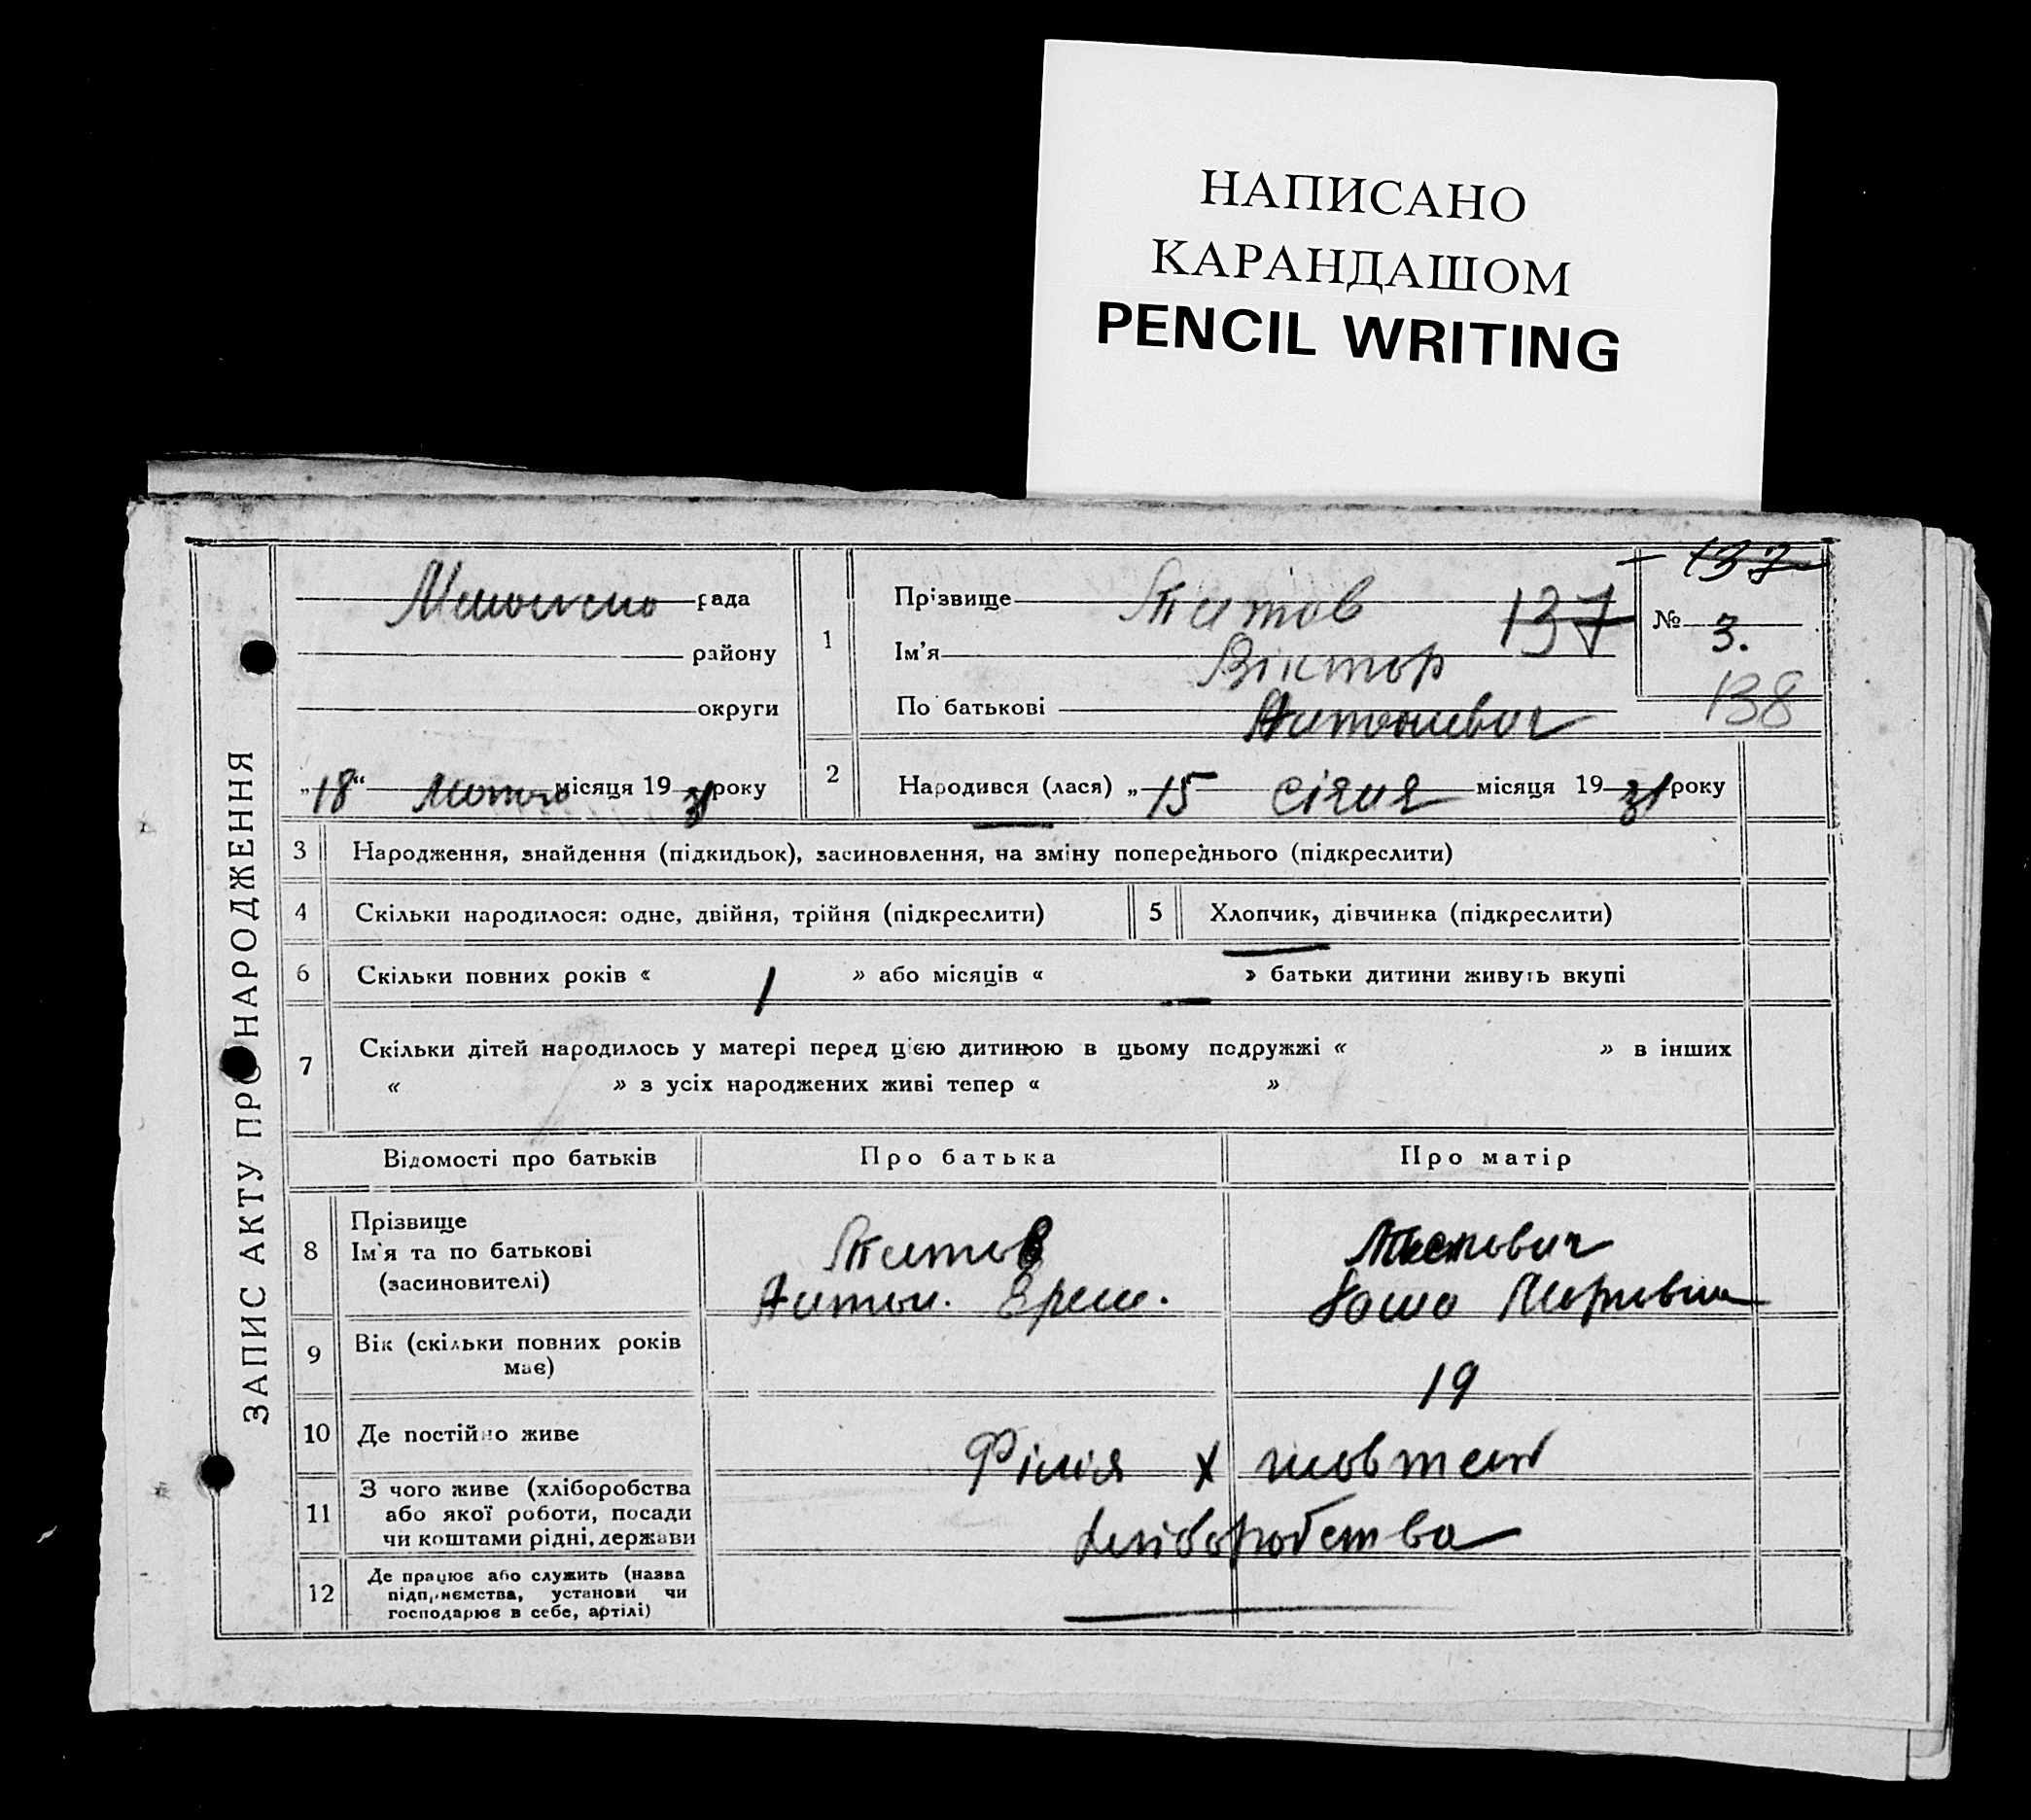 НАПИСАНО
КАРАНДАШОМ
PENCIL WRITING
ЗАПИС АКТУ ПРО НАРОДЖЕННЯ
рада
району
округи
„18“ Лютого місяця 19 31 року
1 Прізвище Титов 137
Ім'я Віктор
По батькові Антоневич
137
№ 3.
138
2 Народився (лася) „15 січня місяця 19 31 року
3 Народження, знайдення (підкидьок), засиновлення, на зміну попереднього (підкреслити)
4 Скільки народилося: одне, двійня, трійня (підкреслити) 5 Хлопчик, дівчинка (підкреслити)
6 Скільки повних років « 1 » або місяців « — » батьки дитини живуть вкупі
7 Скільки дітей народилось у матері перед цією дитиною в цьому подружжі « » в інших
« » з усіх народжених живі тепер « »
Відомості про батьків Про батька Про матір
8 Прізвище
Ім'я та по батькові
(засиновителі)
Титов
Антон. Ерем.
9 Вік (скільки повних років
має)
19
10 Де постійно живе
Філія Х жовтень
11 З чого живе (хліборобства
або якої роботи, посади
чи коштами рідні, держави
хліборобства
12 Де працює або служить (назва
підприємства, установи чи
господарює в себе, артілі)